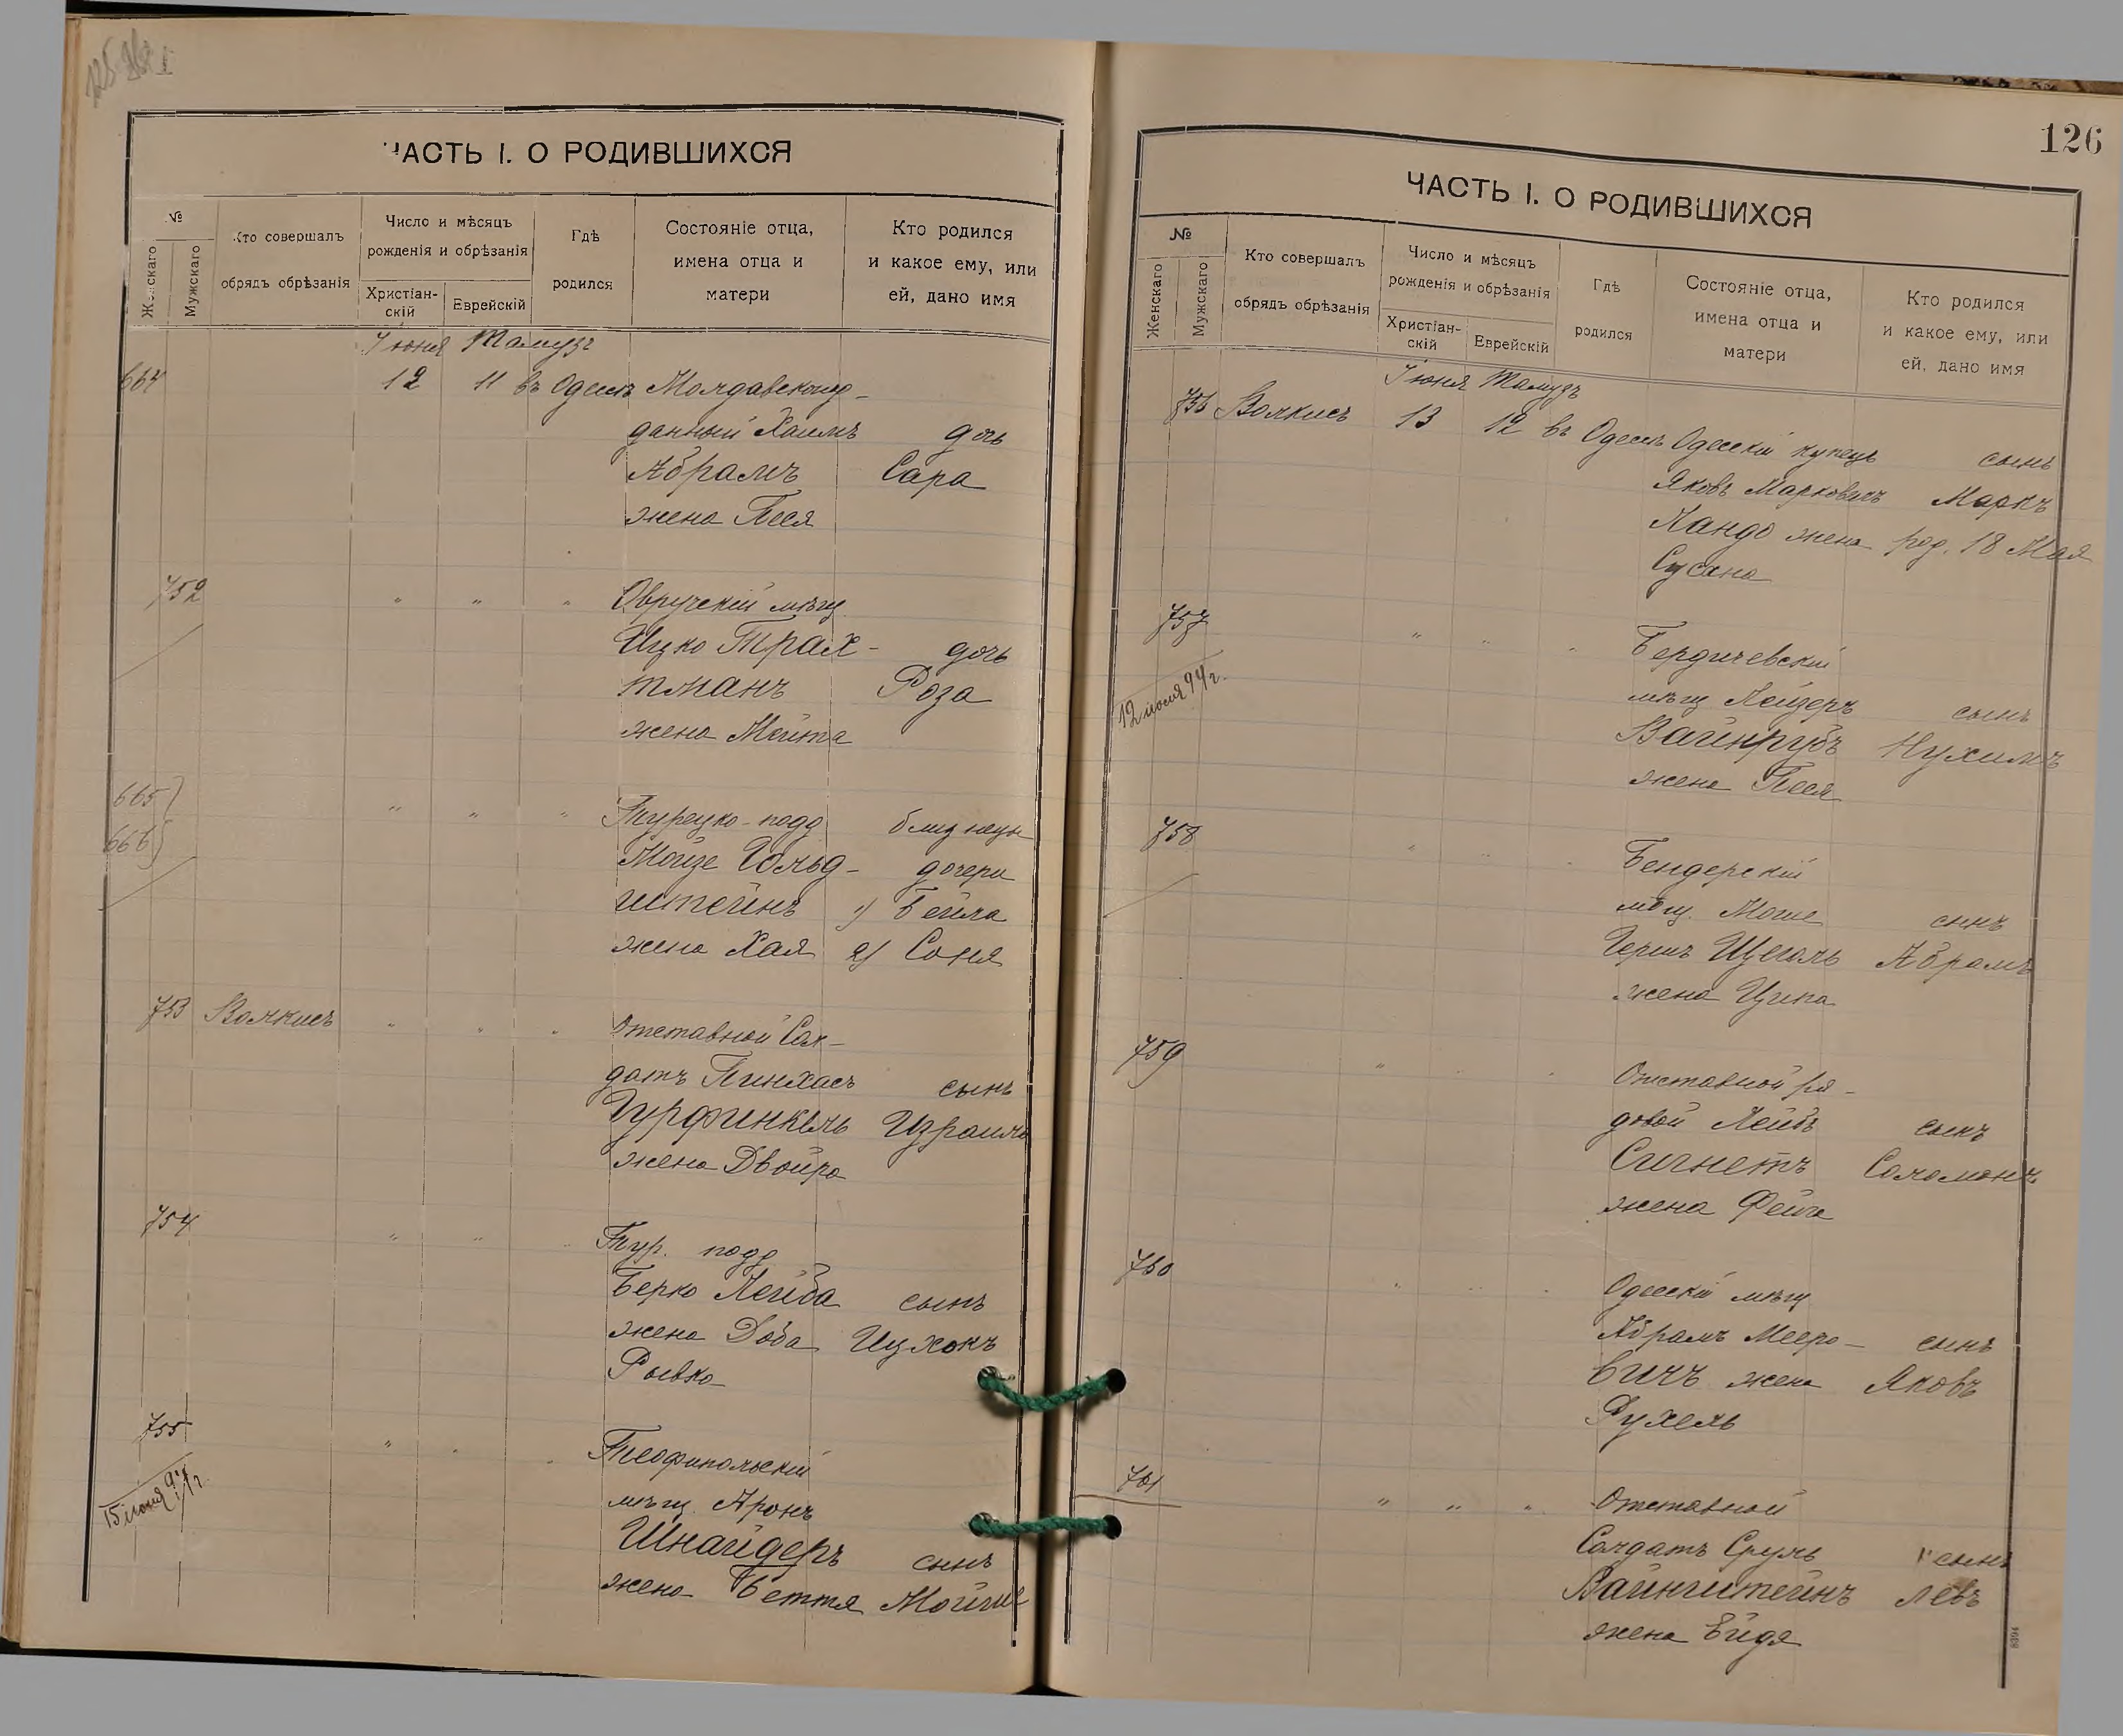 ЧАСТЬ I. О РОДИВШИХСЯ
№
Женскаго
Мужскаго
Кто совершалъ
обрядъ обрѣзанія
Число и мѣсяцъ
рожденія и обрѣзанія
Христіан-
скій
Еврейскій
Гдѣ
родился
Состояніе отца,
имена отца и
матери
Кто родился
и какое ему, или
ей, дано имя
Іюня Тамузъ
664 12 11 въ Одессѣ Молдавскопод-
данный Хаимъ дочь
Абрамъ Сара
жена Песя
752 " " " Овручскій мѣщ
Ицко Трах- дочь
тманъ Роза
жена Мейта
665 " " " Турецко-подд близнецы
666 Мойше Гольд- дочери
штейнъ 1) Бейла
жена Хая 2) Соня
753 Волкисъ " " " Отставной Сол-
датъ Пинхасъ сынъ
Гурфинкель Израиль
жена Двойра
754 " " " Тур. подд
Берко Лейба сынъ
жена Доба Ицхокъ
Рывка
755 " " " Теофипольскій
15 июня 94 г. мѣщ. Аронъ
Шнайдеръ сынъ
жена Бетя Мойше
126
ЧАСТЬ I. О РОДИВШИХСЯ
№
Женскаго
Мужскаго
Кто совершалъ
обрядъ обрѣзанія
Число и мѣсяцъ
рожденія и обрѣзанія
Христіан-
скій
Еврейскій
Гдѣ
родился
Состояніе отца,
имена отца и
матери
Кто родился
и какое ему, или
ей, дано имя
Іюня Тамузъ
756 Волкисъ 13 12 въ Одессѣ Одесскій купецъ сынъ
Яковъ Марковичъ Маркъ
Кандо жена род. 18 Мая
Сусана
757 " " " Бердичевскій
12 июля 94 г. мѣщ Лейзеръ сынъ
Вайнрубъ Нухимъ
жена Песя
758 " " " Бендерскій
мѣщ. Моше сынъ
Гершъ Щеголь Абрамъ
жена Ципа
759 " " " Отставной ря-
довой Лейбъ сынъ
Сигнетъ Соломонъ
жена Фейга
760 " " " Одесскій мѣщ
Абрамъ Мееро- сынъ
вичъ жена Яковъ
Рухель
761 " " " Отставной
Солдатъ Сруль сынъ
Вайнштейнъ Левъ
жена Ейдя
8394